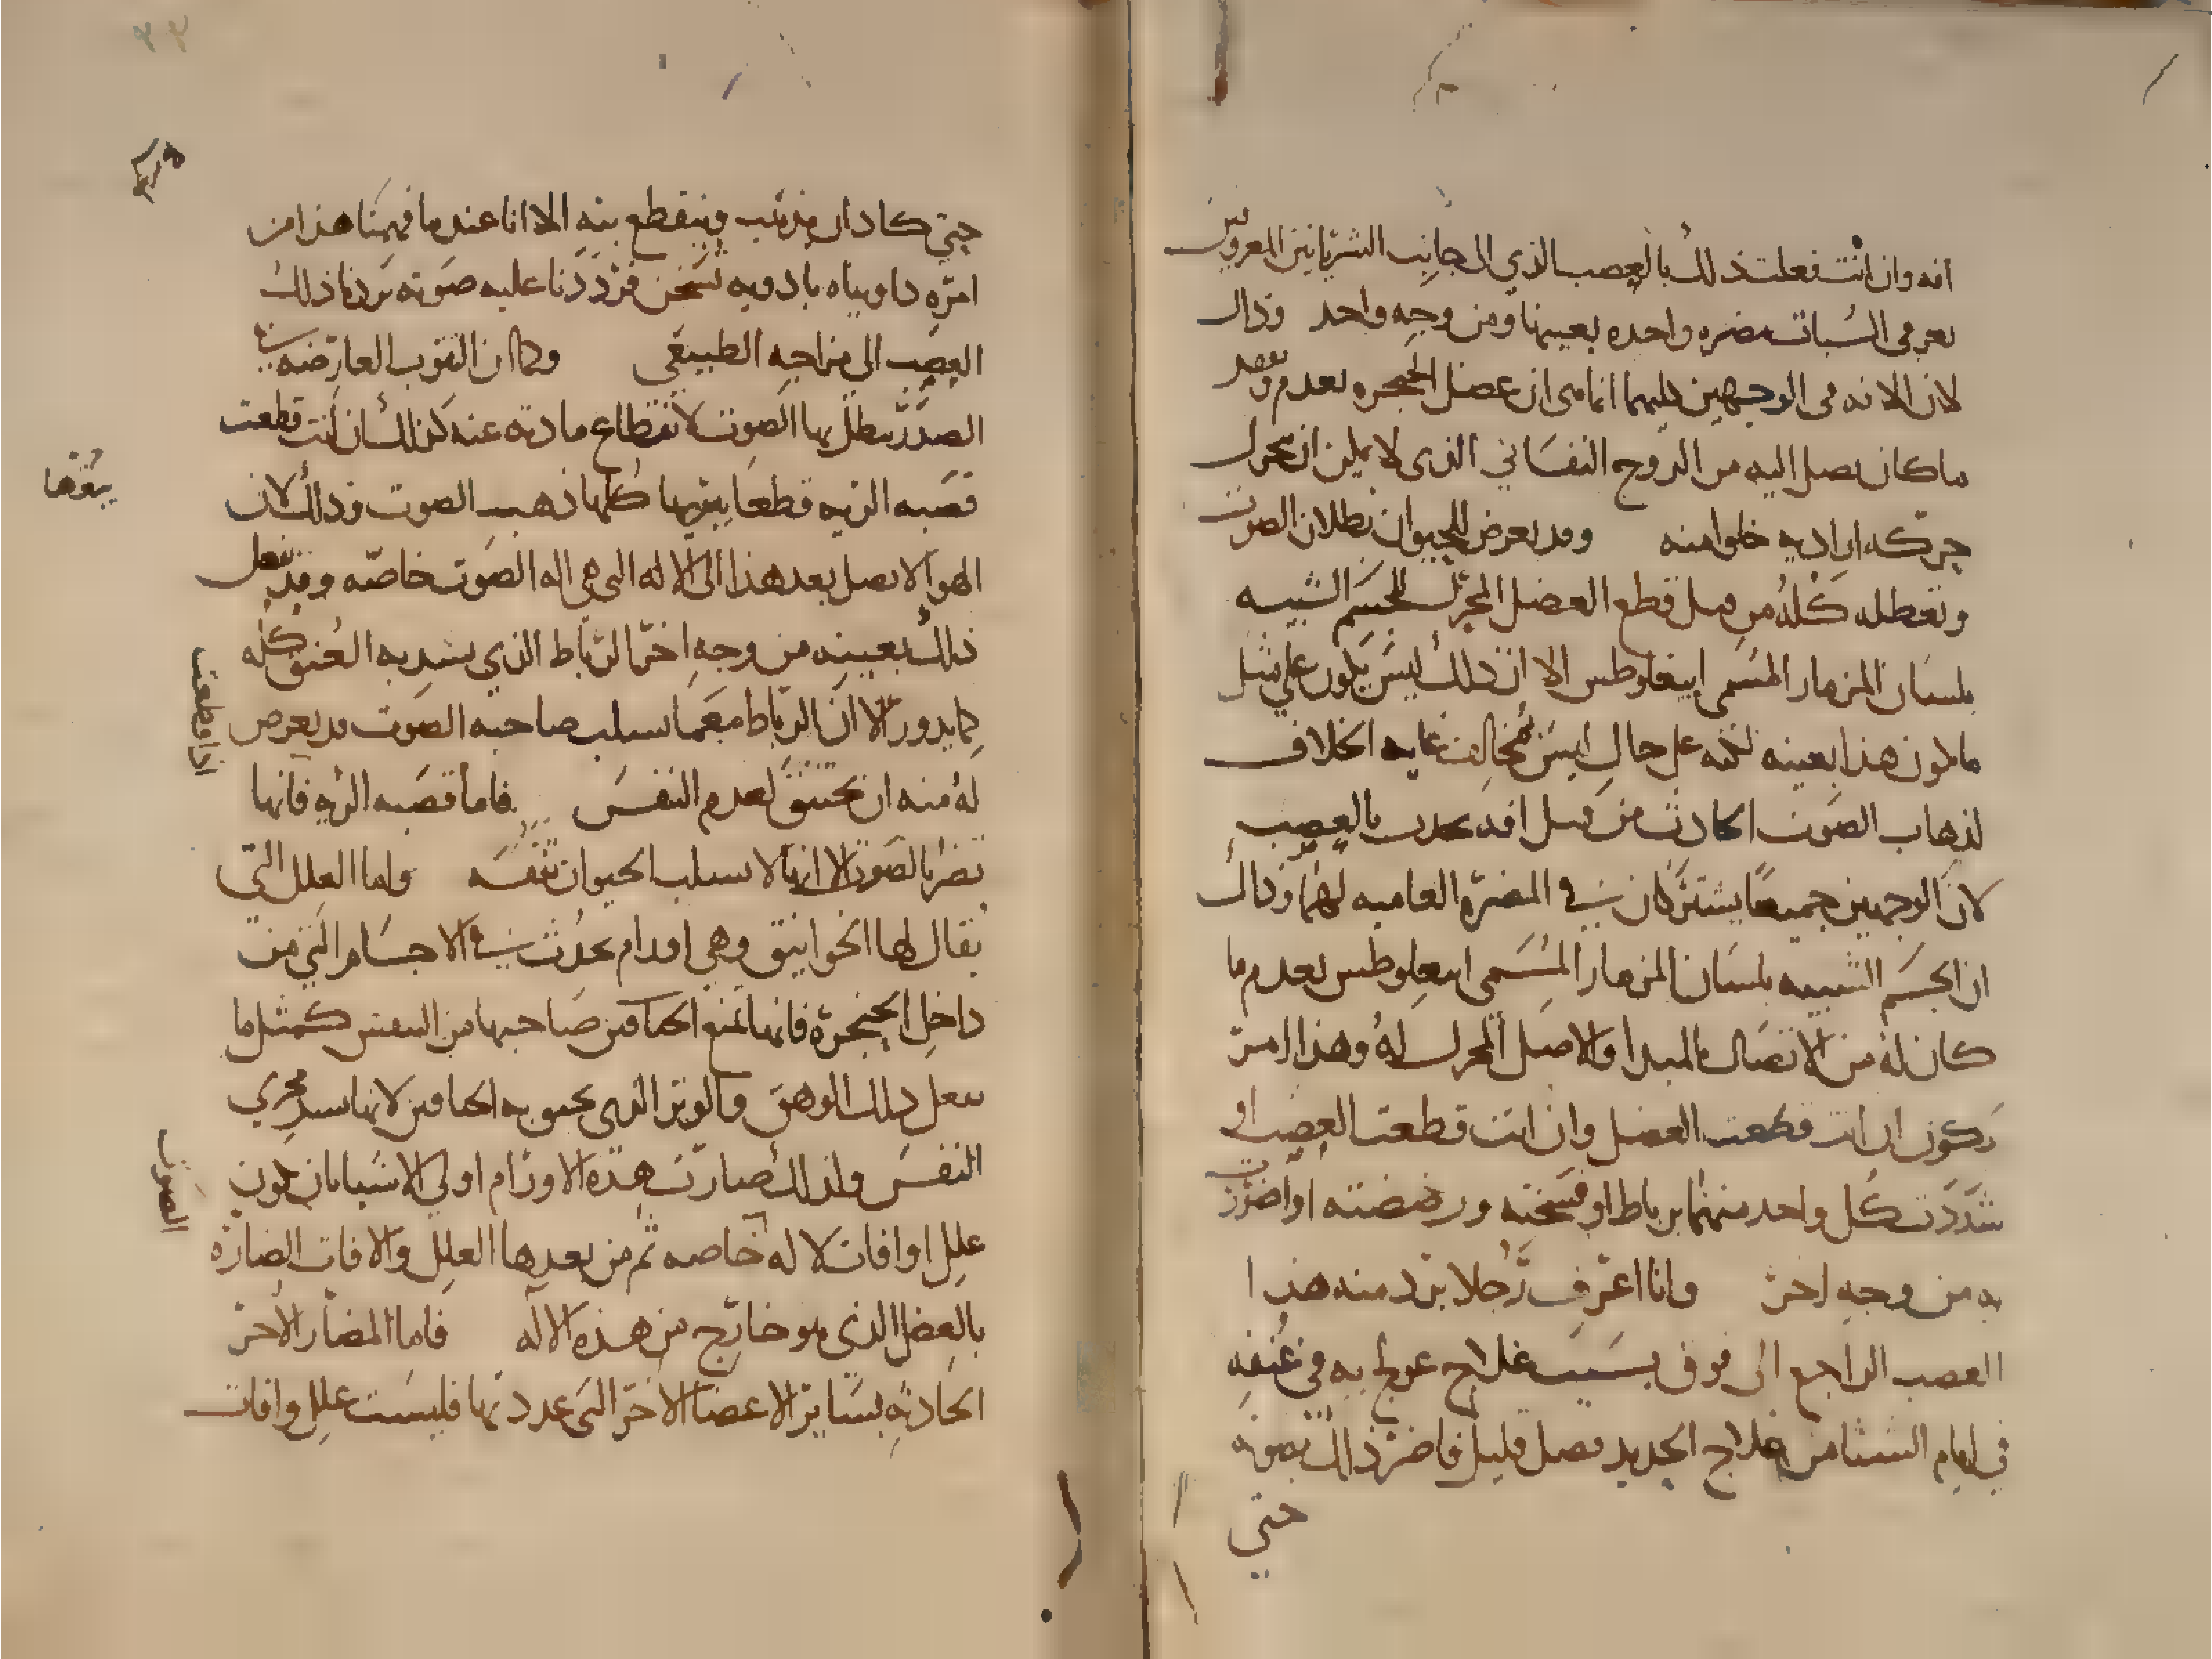 افه وان انت فعلت ذلك بالعصب الذي الى جانب الشريانين المعروفين
بعرقى السبات مضره واحده بعينها ومن وجه واحد وذاك
لان الافه فى الوجهين كليهما انما هى ان عضل الحنجره يعدم ويفقد
ما كان يصل اليه من الروح النفساني الذى لا يمكن ان يتحرك
حركه اراديه خلوا منه وقد يعرض للحيوان بطلان الصوت
وتعطله كله من قبل قطع العضل المحرك للجسم الشبيه
بلسان المزمار المسمى ابيغلوطس الا ان ذلك ليس يكون على مثل
ما يكون هذا بعينه لكنه على حال ليس بمخالف غايه الخلاف
لذهاب الصوت الحادث من قبل افه تحدث بالعصب
لان الوجهين جميعا يشتركان في المضرة العاميه لهما وذاك
ان الجسم الشبيه بلسان المزمار المسمى ابيغلوطس يعدم ما
كان له من الاتصال بالمبدا والاصل المحرك له وهذا امر
يكون ان انت قطعت العضل وان انت قطعت العصب او
شددت كل واحد منهما برباط او فسخته ورضضته او اضررت
به من وجه اخر وانا اعرف رجلا برد منه هذا
العصب الراجع الى فوق بسبب علاج عولج به في عنقه
في ايام الشتا من علاج الحديد فصل قليل فاضر ذلك بصوته
حتى
حتى كاد ان يذهب وينقطع بته الا انا عند ما فهمنا هذا من
امره داويناه بادويه تسخن فرددنا عليه صوته بردنا ذلك
العصب الى مزاجه الطبيعي وكما ان الثقوب العارضه في
الصدر يبطل بها الصوت لانقطاع مادته عنه كذلك ان انت قطعت
قصبه الريه قطعا يبترها كلها ذهب الصوت وذاك لان
الهوا لا يصل بعد هذا الى الاله التى هى اله الصوت خاصه وقد يفعل
ذلك بعينه من وجه اخر الرباط الذي يشد به العنق كله
كما يدور الا ان الرباط مع ما يسلب صاحبه الصوت قد يعرض
له منه ان يختنق لعدم النفس فاما قصبه الريه فانها
تضر بالصوت الا انها لا تسلب الحيوان تنفسه واما العلل التى
يقال لها الخوانيق وهي اورام تحدث في الاجسام التي من
داخل الحنجرة فانها تمنع صاحبها من التنفس كمثل ما
يفعل ذلك الوهق والوتر الذى يخنق به لانها تسد مجرى
النفس ولذلك صارت هذه الاورام اولى الاشيا بان تكون
علل او افات لاله خاصه ثم من بعدها العلل والافات الضاره
بالعضل الذى هو خارج من هذه الاله فاما المضار الاخر
الحادثه بسائر الاعضا الاخر التى عددتها فليست علل وافات
يبترها
اذا قطعت
الصوت